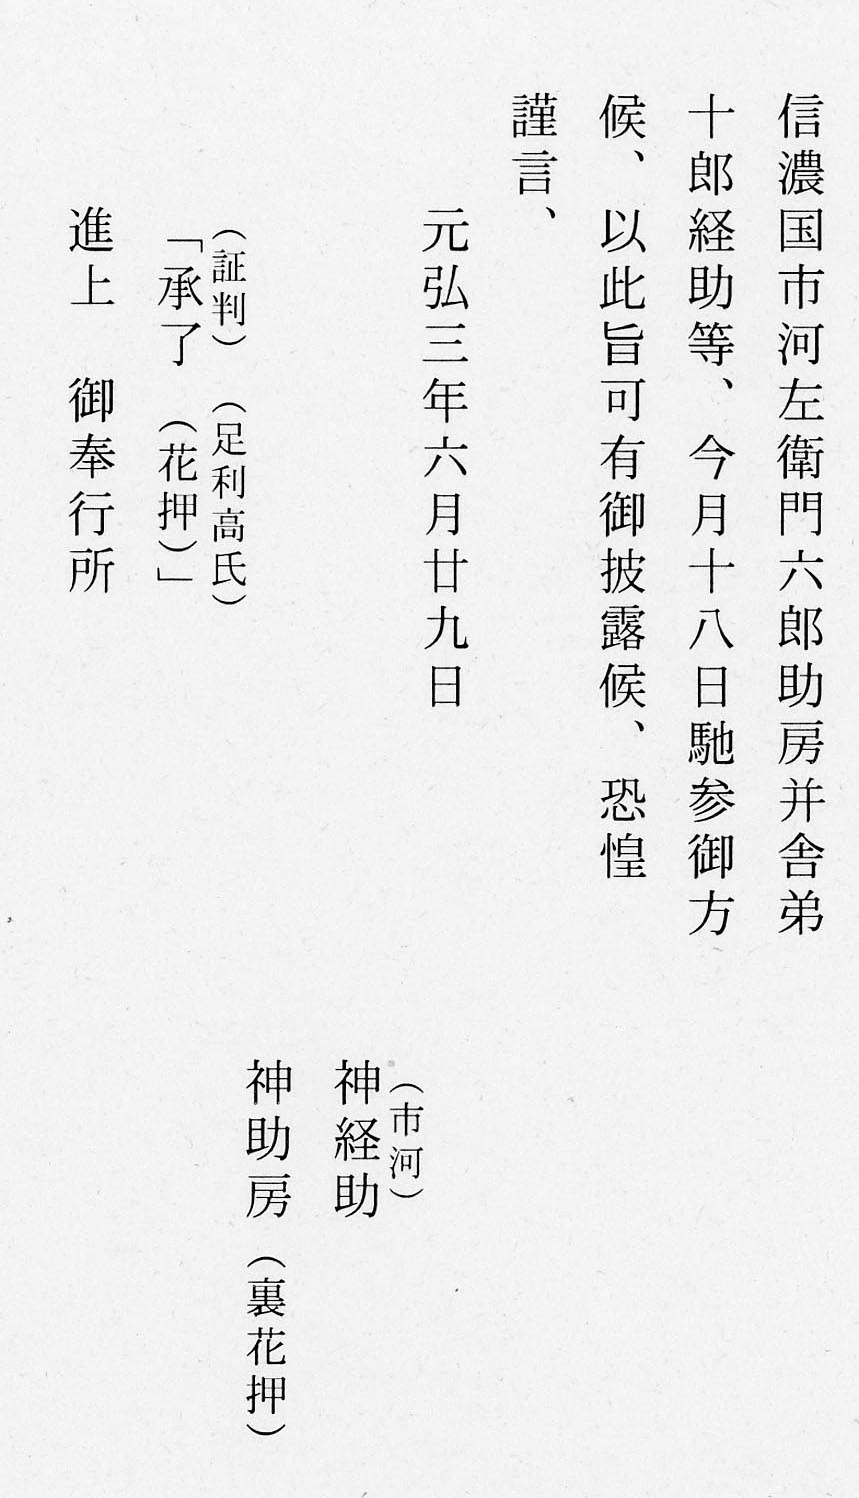 信濃国市河左衛門六郎助房并舎弟
十郎経助等、今月十八日馳参御方
候、以此旨可有御披露候、恐惶
謹言、
元弘三年六月廿九日
（市河）
神経助
神助房（裏花押）
（証判）（足利高氏）
「承了（花押）」
進上　御奉行所